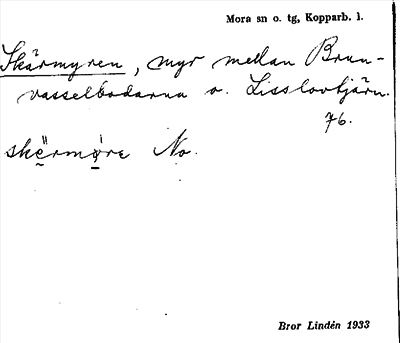 Mora sn o. tg, Kopparb. l.
Skärmyren, myr mellan Brun-
vasselbodarna o. Lisslovtjärn.
76.
skërmøre No.
Bror Lindén 1933